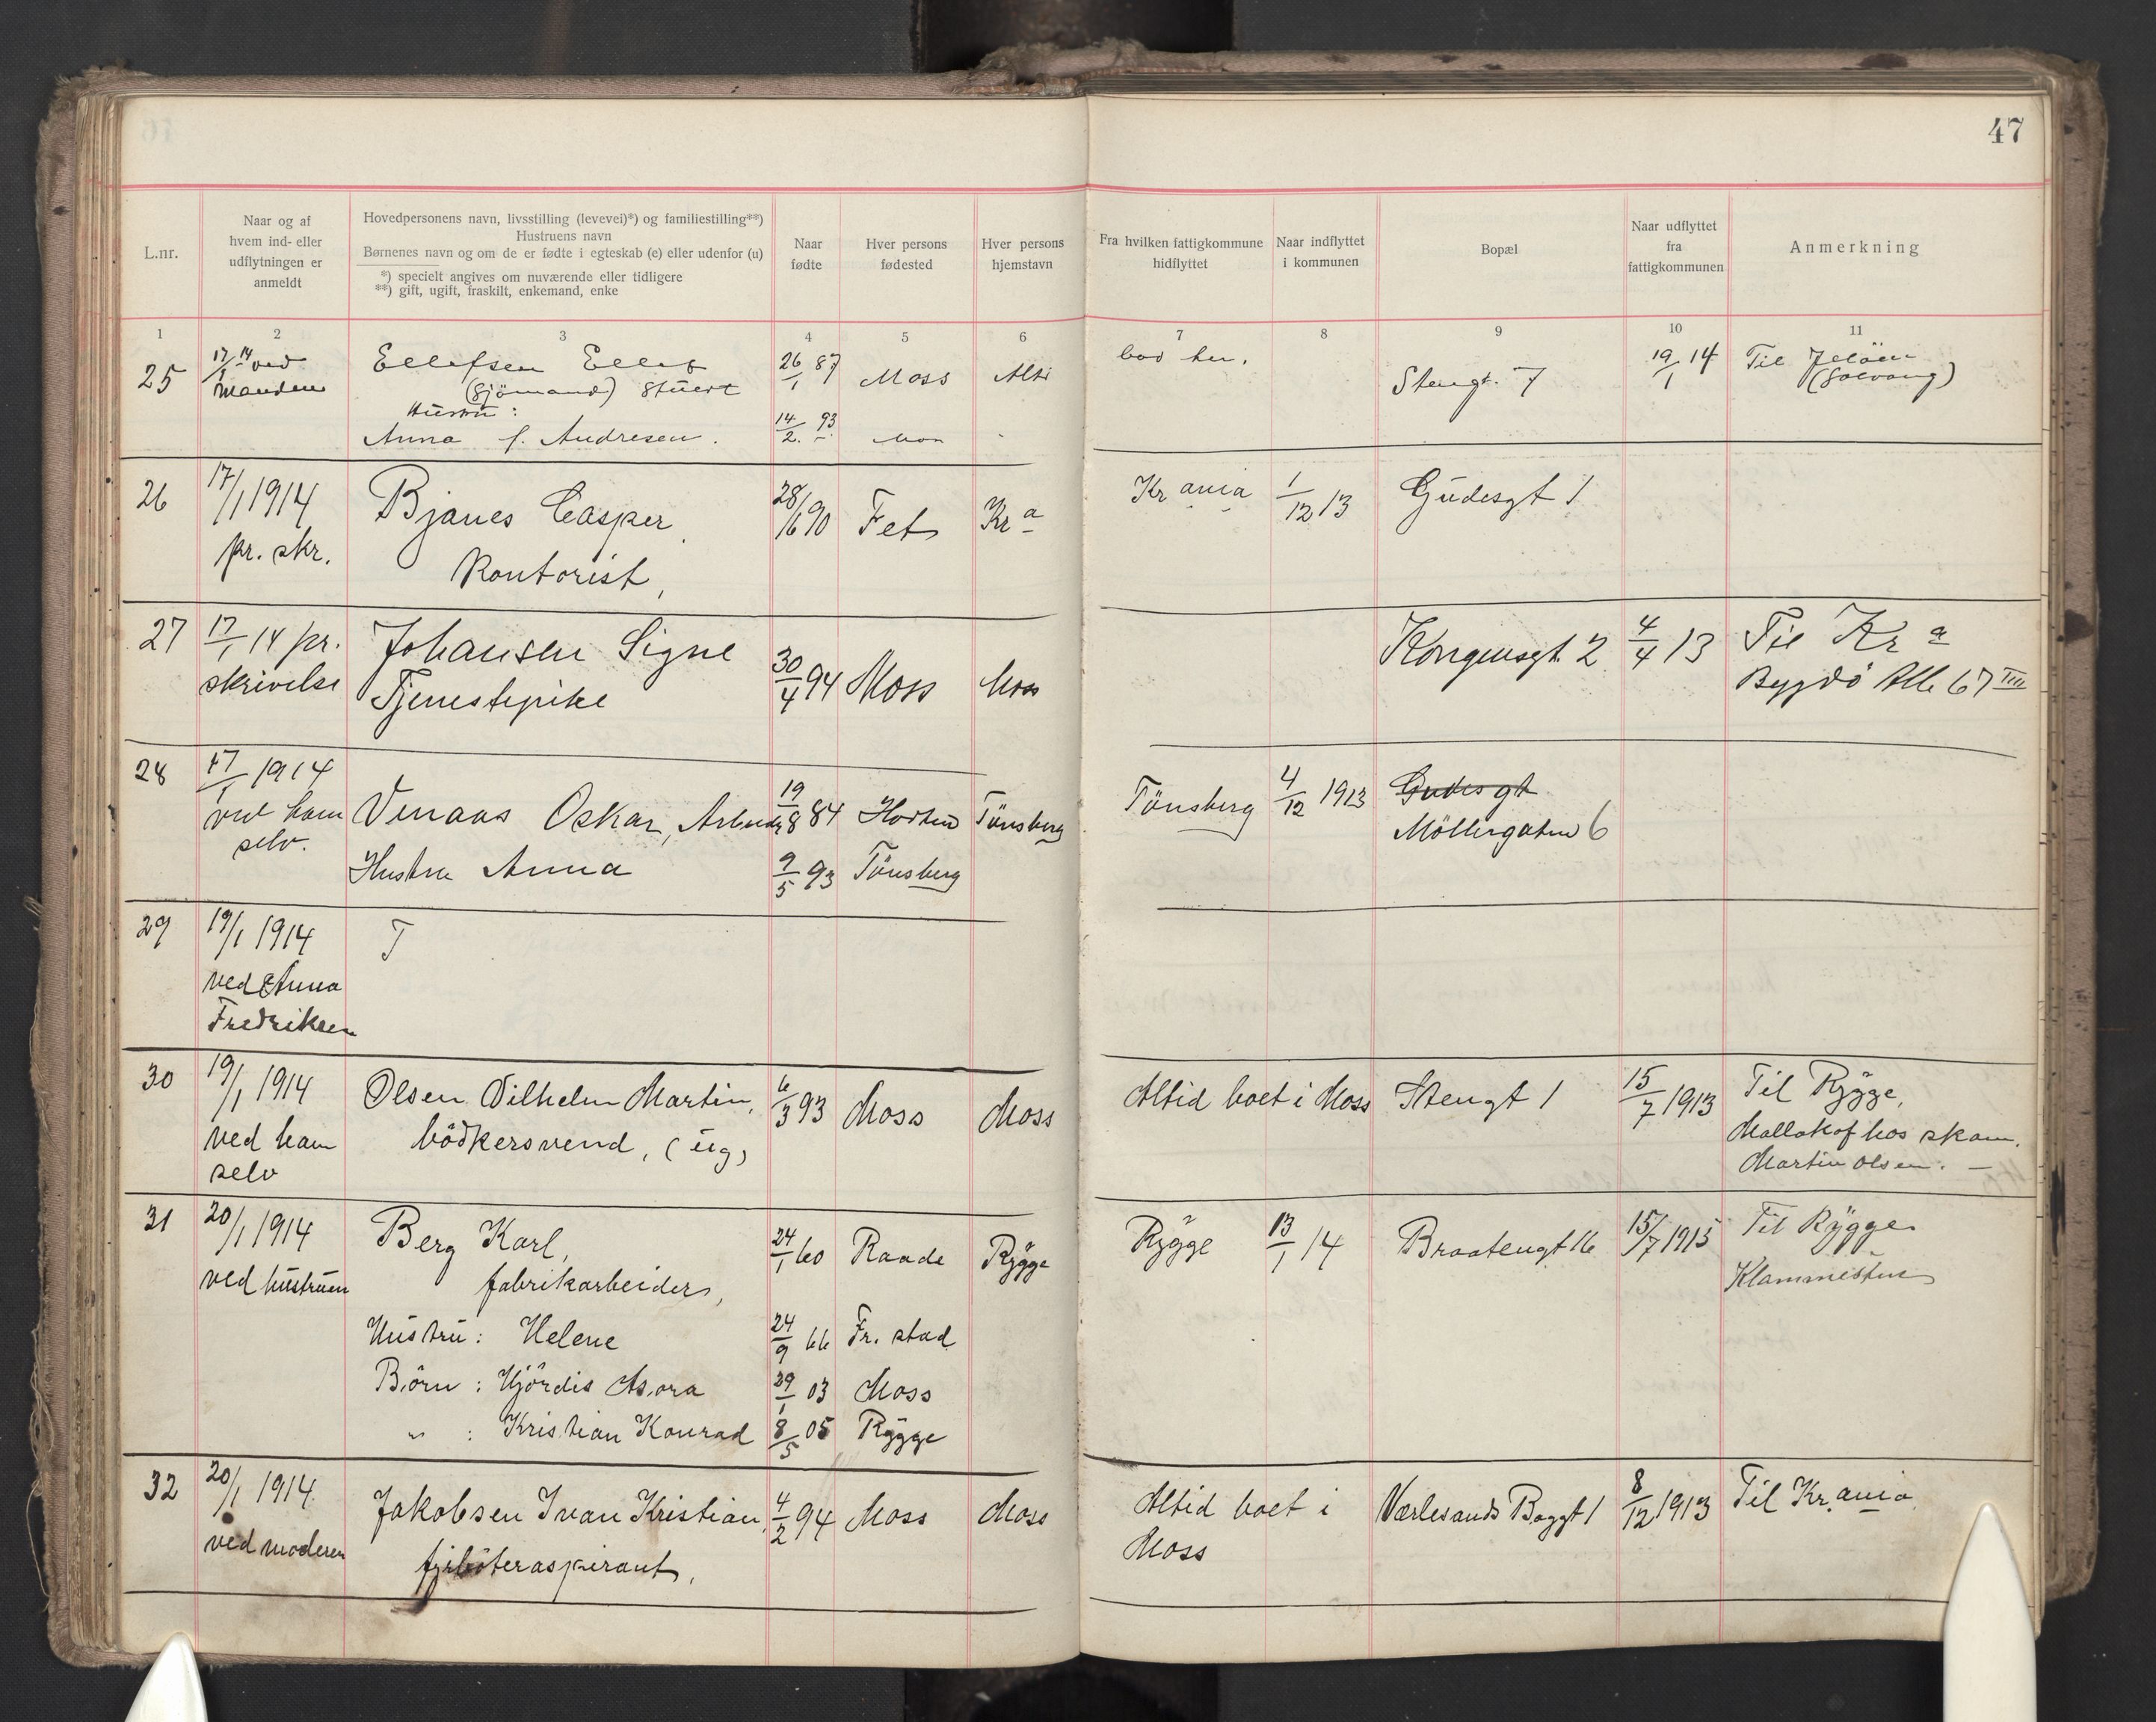 47
L.nr.
Naar og af
hvem ind- eller
udflytningen er
anmeldt
Hovedpersonens navn, livsstilling (levevei)*) og familiestilling**)
Hustruens navn
Børnenes navn og om de er fødte i egteskab (e) eller udenfor (u)
*) specielt angives om nuværende eller tidligere
**) gift, ugift, fraskilt, enkemand, enke
Naar
fødte
Hver persons
fødested
Hver persons
hjemstavn
Fra hvilken fattigkommune
hidflyttet
Naar indflyttet
i kommunen
Bopæl
Naar udflyttet
fra
fattigkommunen
Anmerkning
1 2 3 4 5 6 7 8 9 10 11
25 17/1 14 ved Ellefsen Ellef 26/1 87 Moss bod her. Stengt. 7 19/1 14 Til Jelöen
manden (Sjömand) Stuert (Solvang)
Hustru:
Anna f. Andresen. 14/2. 93
26 17/1 1914 Bjanes Casper 28/6 90 Fet Kra Krania 1/12 13 Gudesgt 1
pr. skr. Kontorist,
27 17/1 14 pr. Johansen Signe 30/4 94 Moss Moss Kongensgt. 2 4/4 13 Til Kra
skrivelse Tjenestepike Bygdö Alle 67 III
28 17/1 1914 Venaas Oskar, Arbeider 19/8 84 Horten Tönsberg Tönsberg 4/12 1913 Gudesgt
ved ham Möllergaten 6
selv.
Hustru Anna 9/5 93 Tönsberg
29 19/1 1914 T
ved Anna
Fredriksen
30 19/1 1914 Olsen Vilhelm Martin, 6/3 93 Moss Moss Altid boet i Moss Stengt 1 15/7 1913 Til Rygge,
ved ham bödkersvend, (ug) Mallakof hos skom.
selv Martin Olsen. —
31 20/1 1914 Berg Karl, 24/1 60 Raade Rygge Rygge 13/1 14 Braatengt 16 15/7 1915 Til Rygge
ved hustruen fabrikarbeider, Klommesten
Hustru: Helene 24/9 66 Fr. stad
Börn: Hjördis Asora 29/1 03 Moss
" : Kristian Konrad 8/5 05 Rygge
32 20/1 1914 Jakobsen Ivan Kristian, 4/2 94 Moss Moss Altid boet i Værlesands Baggt 1 8/12 1913 Til Krania
ved moderen fyrböteraspirant, Moss